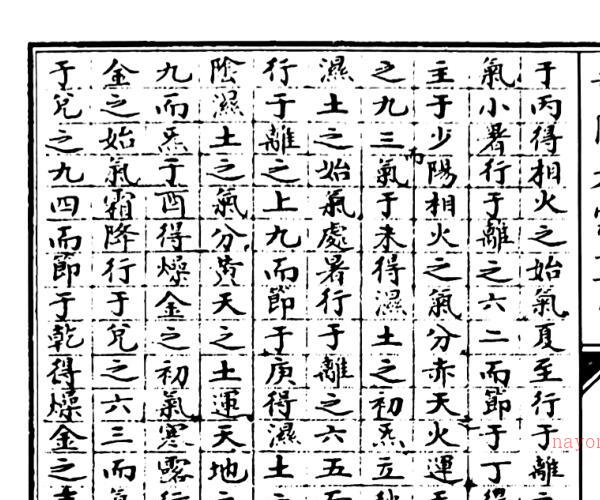 于丙得相火之始氣夏至行于離
氣小暑行于離之六二而節于丁
主于少陽相火之氣分赤天火運
之九三氣于未得濕土之初炁立
而
濕土之始氣處暑行于離之六五
行于離之上九而節于庚得濕土
陰濕土之氣分黄天之土運天地
九而炁于酉得燥金之初氣寒露
金之始氣霜降行于兌之六三而
于兌之九四而節于乾得燥金之
nayo